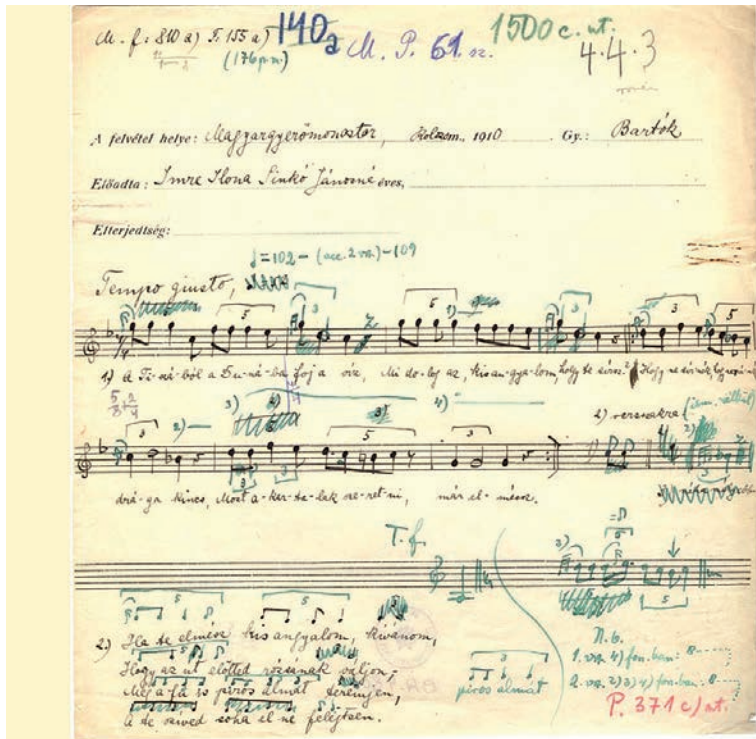 M. f: 810 a) F. 155 a) 140a M. P. 61. sz. 1500 c. ut.
(176 p.n.) 4.4.3
A felvétel helye: Magyargyerőmonostor, Kolozsm., 1910 Gy.: Bartók
Előadta: Imre Ilona Sinkó Jánosné éves,
Elterjedtség:
♩=102 – (acc. 2 vsz.) – 109
Tempo giusto,
1) A Ti-szá-ból a Du-ná-ba foj a víz, Mi do-log az, kis an-gya-lom, hogy te sírsz? Hogy ne sírnék,
2) versszakra
drá-ga kincs, Most a-kar-ta-lak sze-ret-ni, már el-mész.
T. f.
2.) Ha te elmész kis angyalom, kívánom,
Hogy az út előtted rózsának váljon,
Még a fű is piros almát teremjen,
A te szíved soha el ne felejtsen.
piros almát
N. b.
1. vsz. 4) fon.ban: 8
2. vsz. 2) 3) 4) fon.ban: 8
P. 371 c) at.